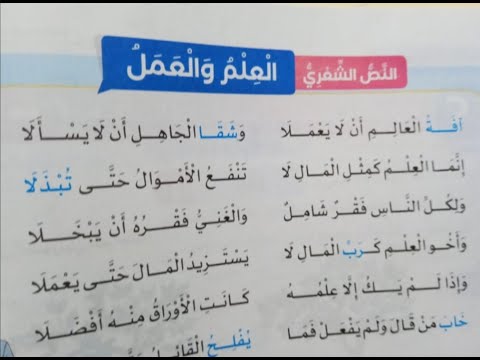 النَّصُّ الشِّعْرِيُّ
الْعِلْمُ وَالْعَمَلُ
آفَةُ الْعَالِمِ أَنْ لَا يَعْمَلَا وَشَقَا الْجَاهِلِ أَنْ لَا يَسْأَلَا
إِنَّمَا الْعِلْمُ كَمِثْلِ الْمَالِ لَا تَنْفَعُ الْأَمْوَالُ حَتَّى تُبْذَلَا
وَلِكُلِّ النَّاسِ فَقْرٌ شَامِلٌ وَالْغَنِيُّ فَقْرُهُ أَنْ يَبْخَلَا
وَأَخُو الْعِلْمِ كَرَبِّ الْمَالِ لَا يَسْتَزِيدُ الْمَالَ حَتَّى يَعْمَلَا
وَإِذَا لَمْ يَكُ إِلَّا عِلْمُهُ كَانَتِ الْأَوْرَاقُ مِنْهُ أَفْضَلَا
خَابَ مَنْ قَالَ وَلَمْ يَفْعَلْ فَمَا يُفْلِحُ